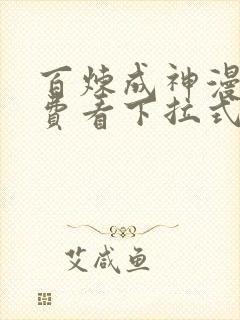 百炼成神漫
费看下拉式
艾咸鱼